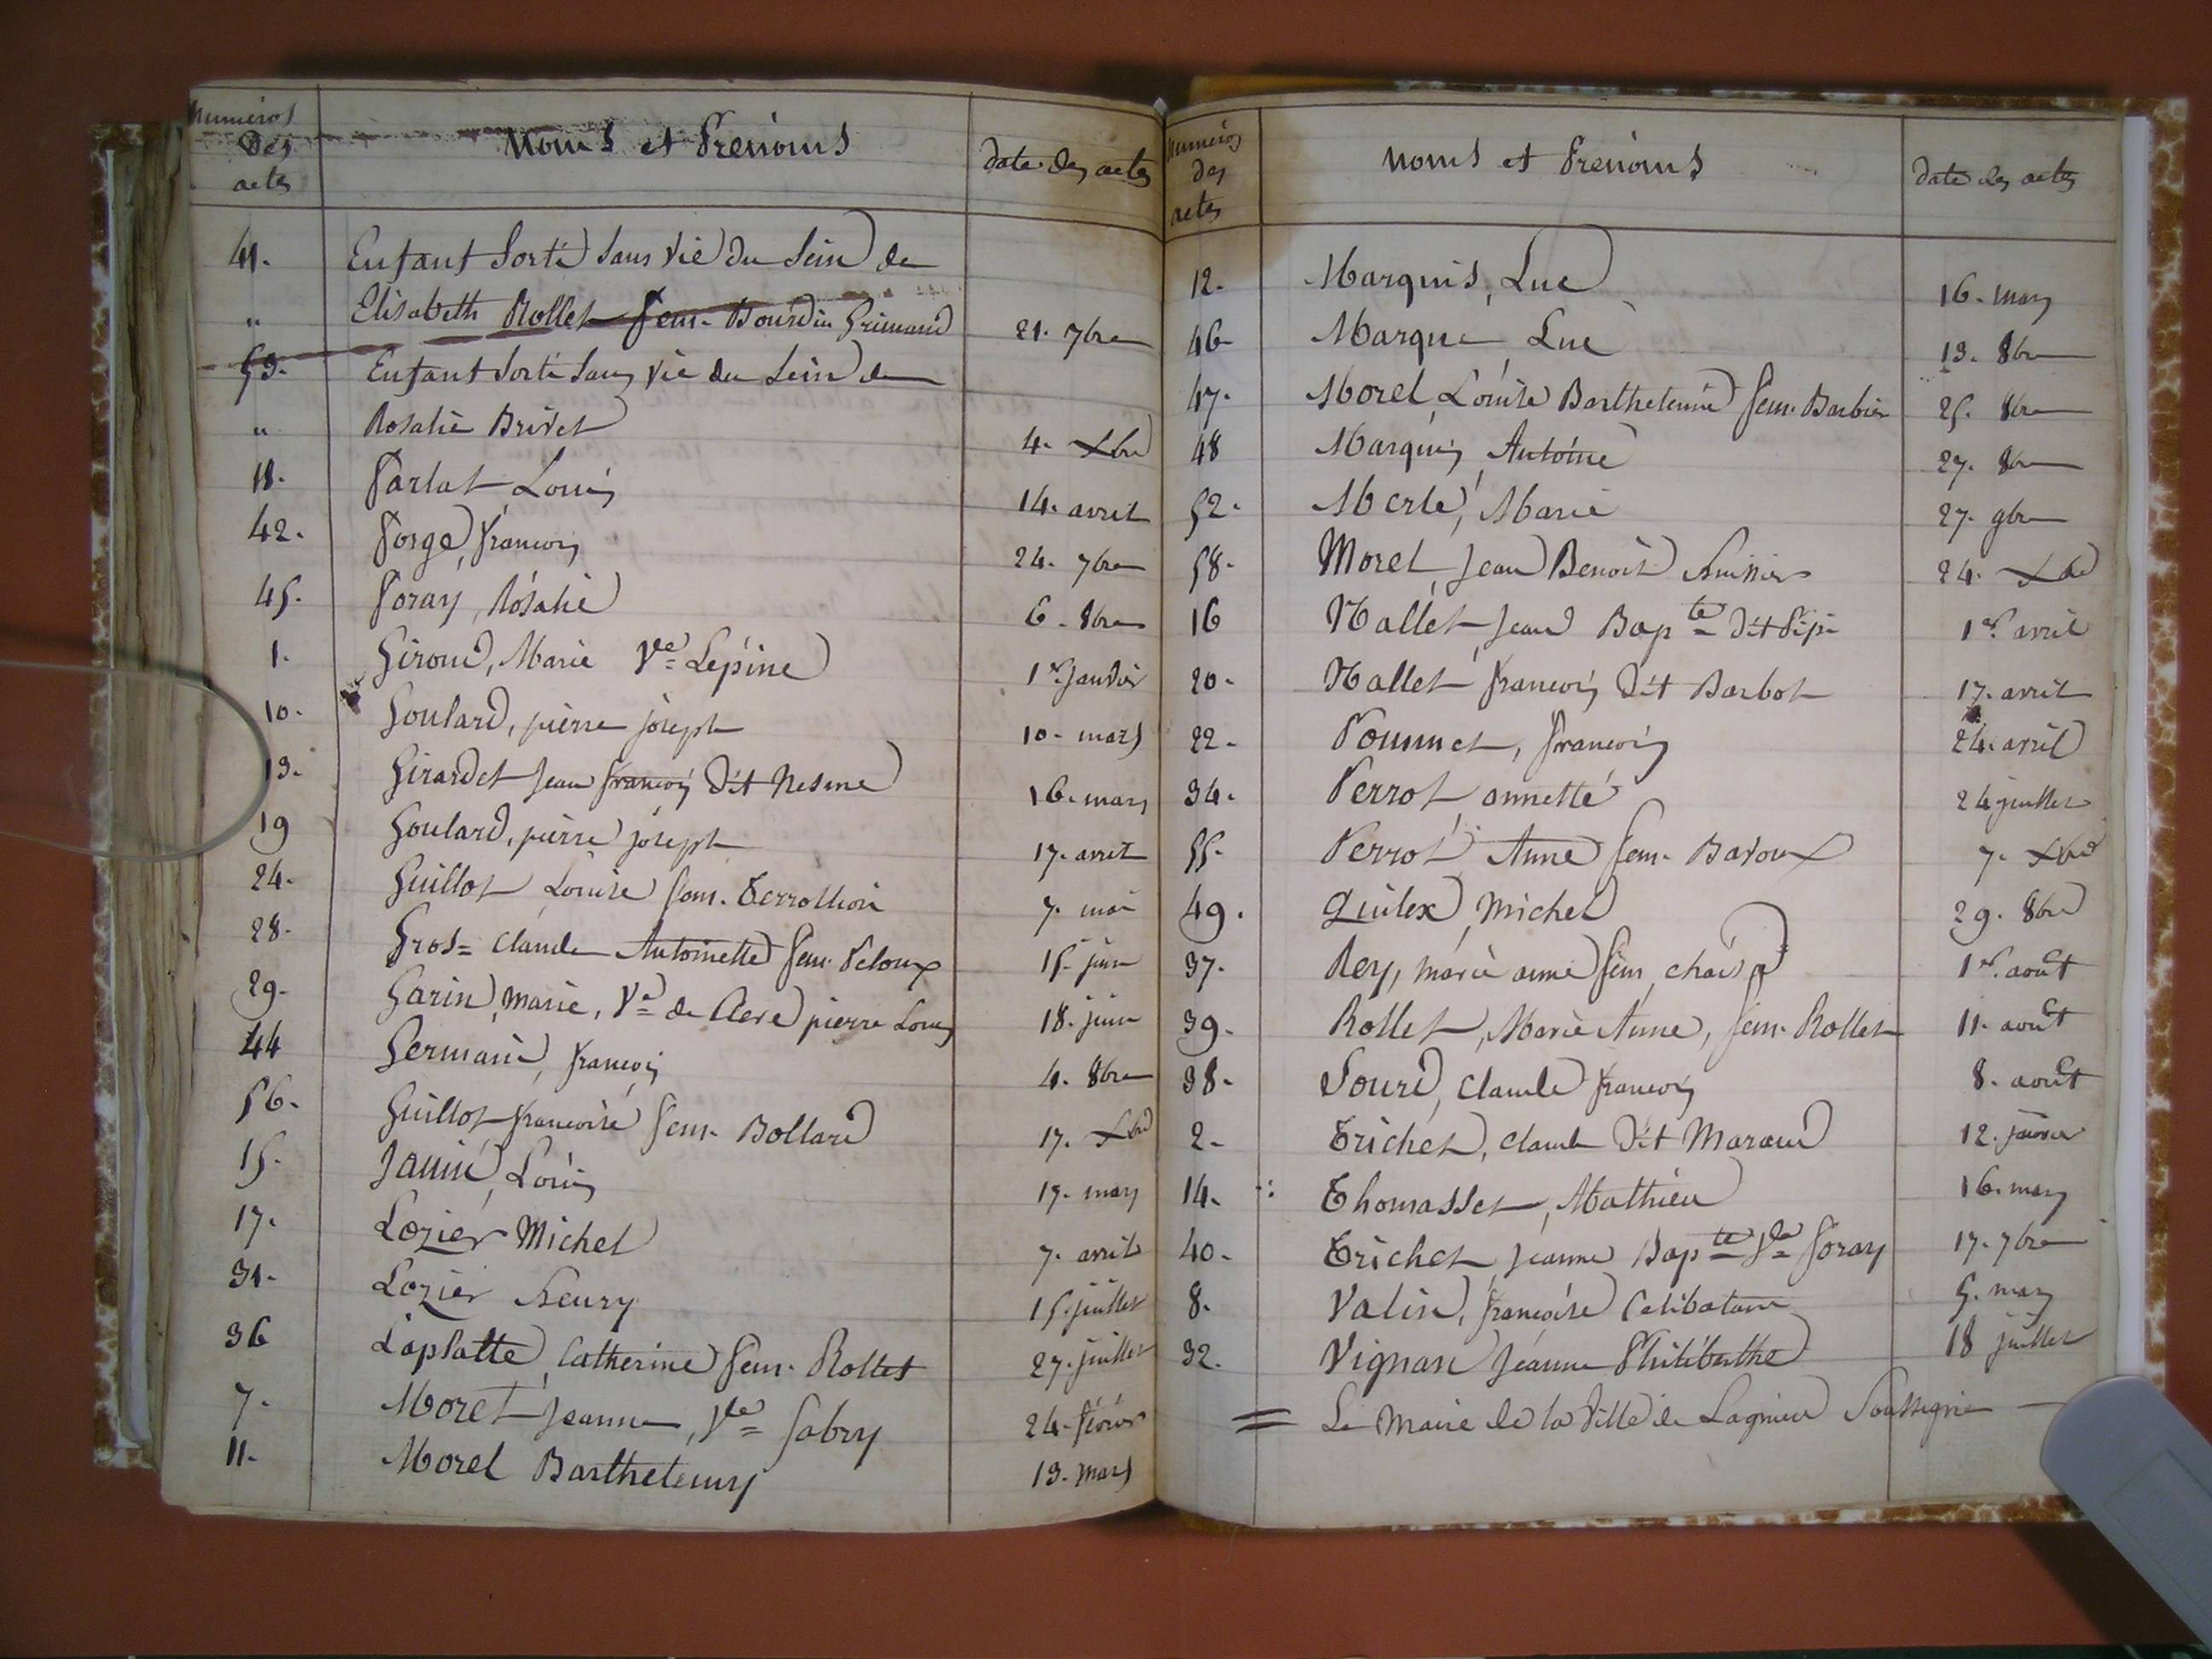 Numéros des actes | Noms et Prénoms | date des actes
41. Enfant Sorti Sans Vie du Sein de
" Elisabeth Rollet fem. Bourdin Grimand 21. 7bre
53. Enfant Sorti Sans Vie du Sein de
" Rosalie Brivet 4. Xbre
18. Farlat Louis 14. avril
42. Forge, francois 24. 7bre
45. Foray, Rosalie 6. 8bre
1. Giroud, Marie Vve Lépine 1er Janvier
10. Goulard, pierre joseph 10. mars
13. Girardet Jean francois dit Nesme 16. mars
19 Goulard, pierre joseph 17. avril
24. Guillot Louise fem. 7. mai
28. Gros= Claude Antoinette fem. Peloux 15. juin
29. Garin, marie, Ve de Clere pierre Louis 18. juin
44 Germain, francois 4. 8bre
56. Guillot francoise fem. Bollard 17. Xbre
15. Janin, Louis 17. mars
17. Lozier Michel 7. avril
31. Lozier henry 15. juillet
36 Laplatte, Catherine fem. Rollet 27. juillet
7. Morel Jeanne, Vve fabry 24. février
11. Morel Barthelemy 13. Mars
Numéros des actes | noms et Prénoms | date des actes
12. Marquis, Luc 16. mars
46. Marque Luc 13. 8bre
47. Morel, Louise Barthelemie fem. Barbier 25. 8bre
48 Marquis, Antoine 27. 8bre
52. Merle, Marie 27. 9bre
58. Morel, Jean Benoit huissier 24. Xbre
16 Nallet, Jean Bapte dit Pipi 1er avril
20. Nallet francois dit Barbot 17. avril
22. Pommet, francois 24. avril
34. Perrot, annette 24 juillet
55. Perrot Anne fem. Baroux 7. Xbre
49. Quilex, Michel 29. 8bre
37. Rey, marie anne fem. 1er août
39. Rollet, Marie Anne, fem. Rollet 11. août
38. Sourd, Claude francois 8. août
2. Trichet, Claude dit Maraud 12. janvier
14. Thomasset, Mathieu 16. mars
40. Trichet Jeanne Bapte Ve foray 17. 7bre
8. Valin, francoise Celibataire 5. mars
32. Vignan Jeanne Philiberthe 18 juillet
= Le Maire de la Ville de Lagnieu Soussigné